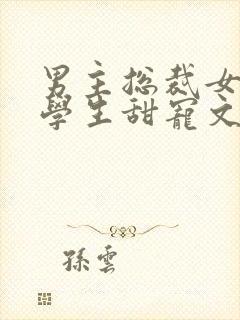 男主总裁女
學生甜寵文
孫雲